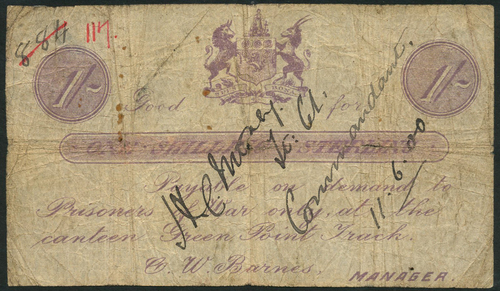 884 117.
1/- 1/-
Good for
ONE SHILLING STERLING
Payable on demand to
Prisoners of War only, at the
canteen Green Point Track.
C. W. Barnes.
MANAGER.
Lt. Col.
Commandant.
11.6.00